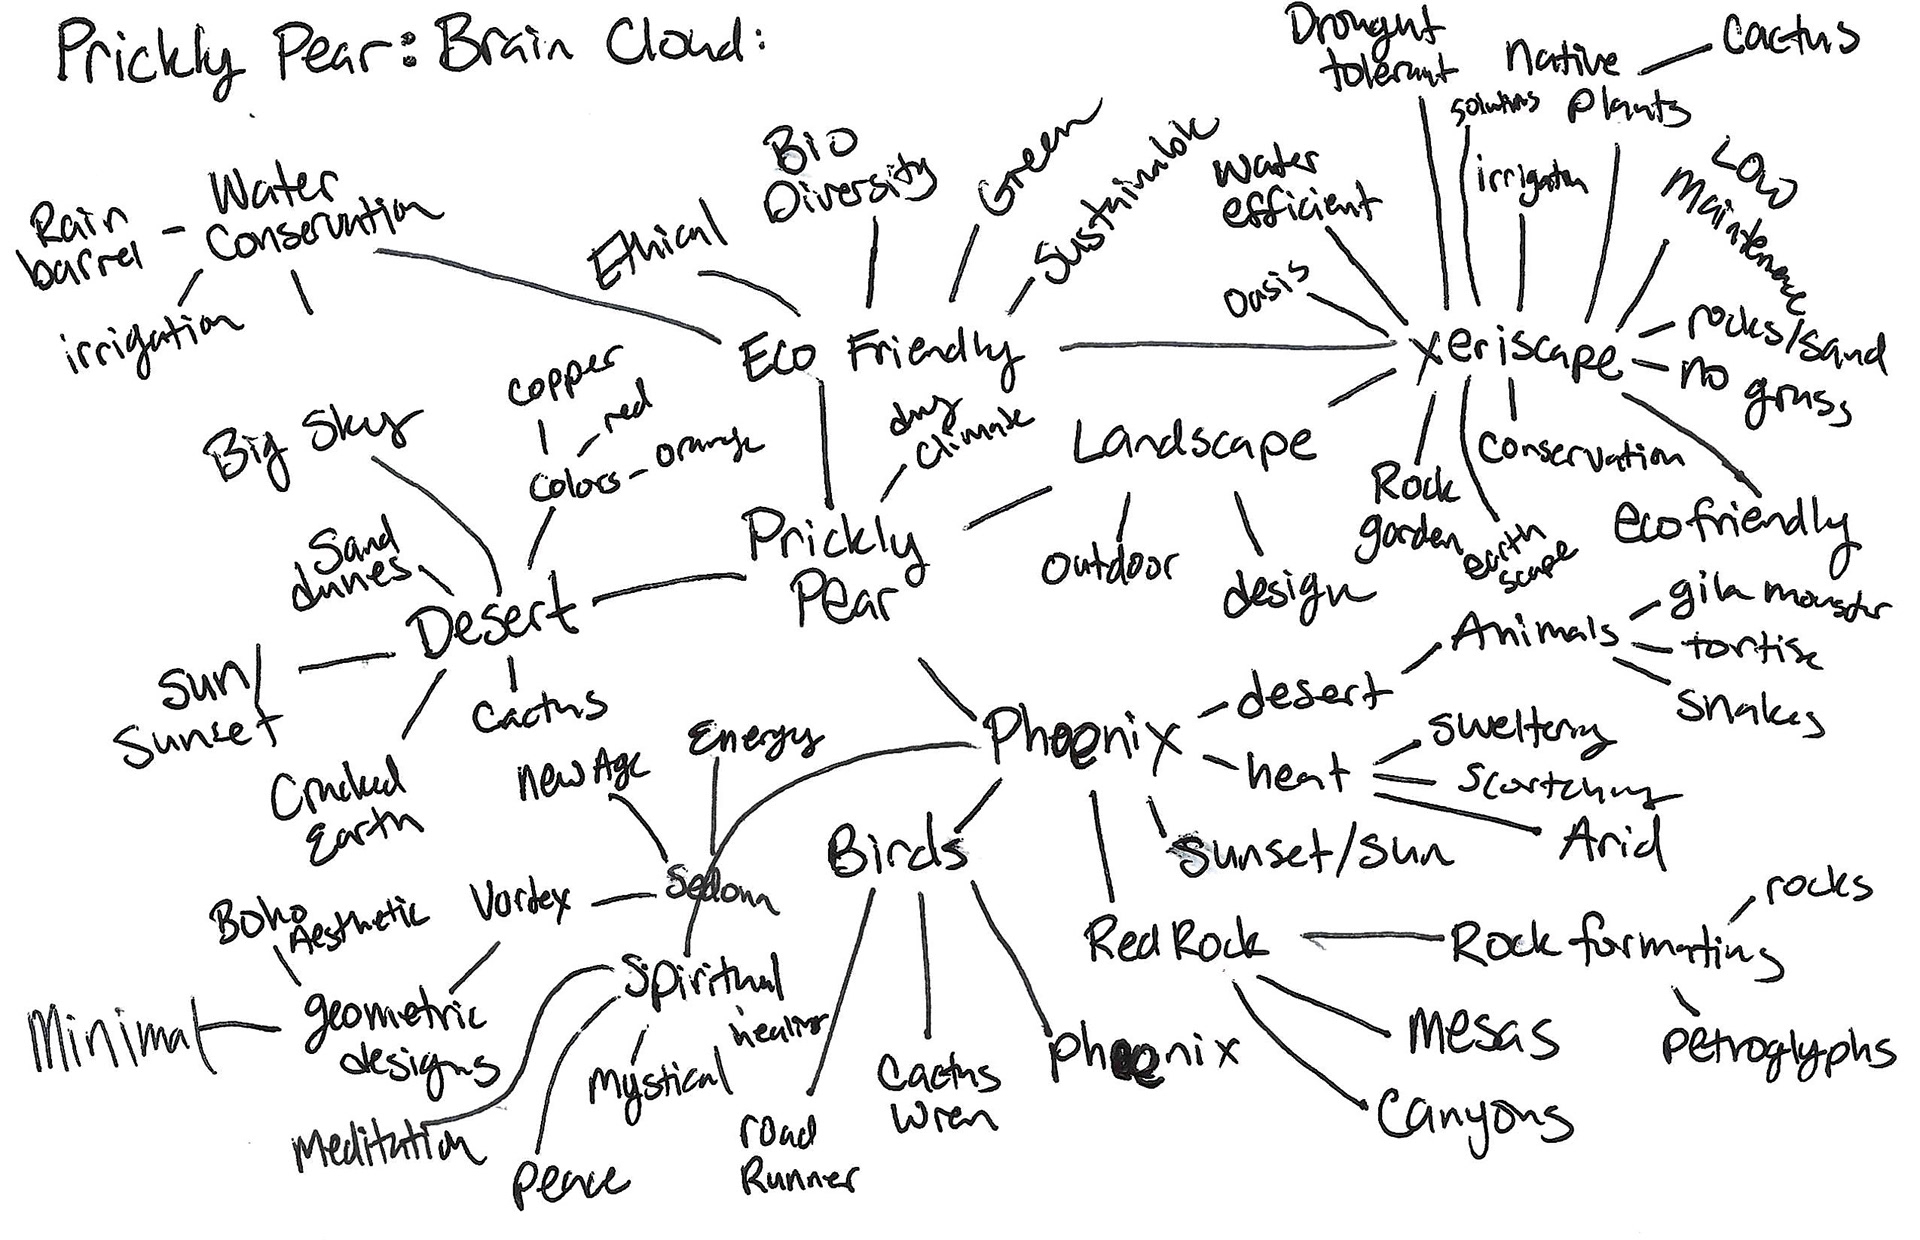 Prickly Pear: Brain Cloud:
Drought
tolerant
solutions
Native
Plants
Cactus
Low
Maintenence
irrigation
Water
efficient
Oasis
Xeriscape
rocks/sand
no grass
Conservation
ecofriendly
Rock
garden
earth
scape
Bio
Diversity
Green
Sustainable
Ethical
Eco Friendly
Water
Conservation
Rain
barrel
irrigation
Copper
red
Colors
orange
Big Sky
dry
Climate
Landscape
Outdoor
design
Prickly
Pear
Sand
dunes
Desert
Sun/
Sunset
Cactus
Cracked
Earth
Phoenix
desert
Animals
gila monster
tortise
Snakes
heat
Sweltering
Scortching
Arid
Sunset/Sun
Energy
New Age
Sedona
Vortex
Boho
Aesthetic
Minimal
geometric
designs
Spiritual
healing
Mystical
Meditation
Peace
Birds
road
Runner
Cactus
Wren
Phoenix
Red Rock
Rock formations
rocks
Petroglyphs
Mesas
Canyons